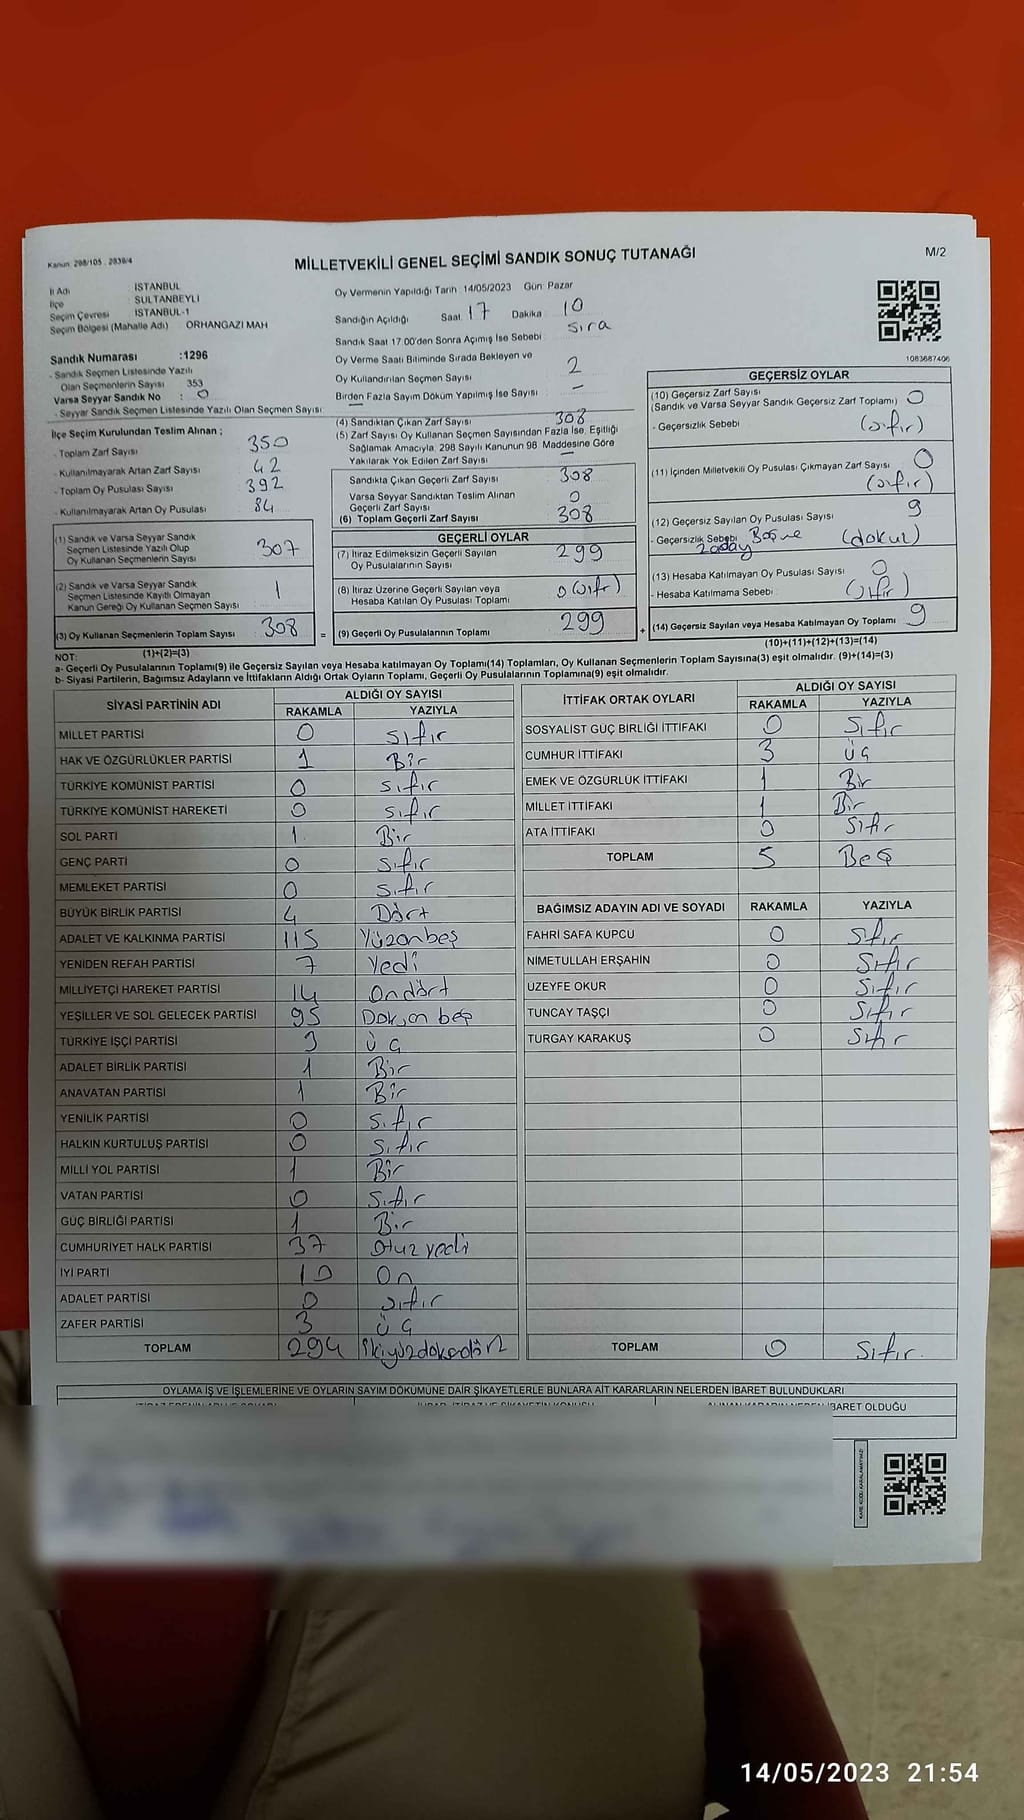 Kanun: 298/105 , 2839/4
MİLLETVEKİLİ GENEL SEÇİMİ SANDIK SONUÇ TUTANAĞI
M/2
İl Adı İSTANBUL
İlçe SULTANBEYLİ
Seçim Çevresi İSTANBUL-1
Seçim Bölgesi (Mahalle Adı) ORHANGAZİ MAH
Sandık Numarası :1296
- Sandık Seçmen Listesinde Yazılı
Olan Seçmenlerin Sayısı 353
Varsa Seyyar Sandık No : 0
- Seyyar Sandık Seçmen Listesinde Yazılı Olan Seçmen Sayısı:
Oy Vermenin Yapıldığı Tarih :14/05/2023 Gün: Pazar
Sandığın Açıldığı Saat: 17 Dakika: 10
Sandık Saat 17:00'den Sonra Açımış İse Sebebi : sıra
Oy Verme Saati Bitiminde Sırada Bekleyen ve
Oy Kullandırılan Seçmen Sayısı 2
Birden Fazla Sayım Döküm Yapılmış İse Sayısı : -
1083687406
İlçe Seçim Kurulundan Teslim Alınan ;
- Toplam Zarf Sayısı : 350
- Kullanılmayarak Artan Zarf Sayısı : 42
- Toplam Oy Pusulası Sayısı : 392
- Kullanılmayarak Artan Oy Pusulası : 84
(1) Sandık ve Varsa Seyyar Sandık
Seçmen Listesinde Yazılı Olup
Oy Kullanan Seçmenlerin Sayısı 307
(2) Sandık ve Varsa Seyyar Sandık
Seçmen Listesinde Kayıtlı Olmayan
Kanun Gereği Oy Kullanan Seçmen Sayısı 1
(3) Oy Kullanan Seçmenlerin Toplam Sayısı 308
(1)+(2)=(3)
(4) Sandıktan Çıkan Zarf Sayısı : 308
(5) Zarf Sayısı Oy Kullanan Seçmen Sayısından Fazla İse, Eşitliği
Sağlamak Amacıyla, 298 Sayılı Kanunun 98. Maddesine Göre
Yakılarak Yok Edilen Zarf Sayısı : -
Sandıkta Çıkan Geçerli Zarf Sayısı 308
Varsa Seyyar Sandıktan Teslim Alınan
Geçerli Zarf Sayısı 0
(6) Toplam Geçerli Zarf Sayısı 308
GEÇERLİ OYLAR
(7) İtiraz Edilmeksizin Geçerli Sayılan
Oy Pusulalarının Sayısı 299
(8) İtiraz Üzerine Geçerli Sayılan veya
Hesaba Katılan Oy Pusulası Toplamı 0 (sıfır)
= (9) Geçerli Oy Pusulalarının Toplamı 299
GEÇERSİZ OYLAR
(10) Geçersiz Zarf Sayısı
(Sandık ve Varsa Seyyar Sandık Geçersiz Zarf Toplamı) 0
- Geçersizlik Sebebi (sıfır)
(11) İçinden Milletvekili Oy Pusulası Çıkmayan Zarf Sayısı 0
(sıfır)
(12) Geçersiz Sayılan Oy Pusulası Sayısı 9
- Geçersizlik Sebebi (dokuz)
(13) Hesaba Katılmayan Oy Pusulası Sayısı 0
- Hesaba Katılmama Sebebi (sıfır)
+ (14) Geçersiz Sayılan veya Hesaba Katılmayan Oy Toplamı 9
(10)+(11)+(12)+(13)=(14)
NOT:
a- Geçerli Oy Pusulalarının Toplamı(9) ile Geçersiz Sayılan veya Hesaba katılmayan Oy Toplamı(14) Toplamları, Oy Kullanan Seçmenlerin Toplam Sayısına(3) eşit olmalıdır. (9)+(14)=(3)
b- Siyasi Partilerin, Bağımsız Adayların ve İttifakların Aldığı Ortak Oyların Toplamı, Geçerli Oy Pusulalarının Toplamına(9) eşit olmalıdır.
SİYASİ PARTİNİN ADI ALDIĞI OY SAYISI
RAKAMLA YAZIYLA
MİLLET PARTİSİ 0 sıfır
HAK VE ÖZGÜRLÜKLER PARTİSİ 1 Bir
TÜRKİYE KOMÜNİST PARTİSİ 0 sıfır
TÜRKİYE KOMÜNİST HAREKETİ 0 sıfır
SOL PARTİ 1 Bir
GENÇ PARTİ 0 sıfır
MEMLEKET PARTİSİ 0 sıfır
BÜYÜK BİRLİK PARTİSİ 4 Dört
ADALET VE KALKINMA PARTİSİ 115 Yüzonbeş
YENİDEN REFAH PARTİSİ 7 Yedi
MİLLİYETÇİ HAREKET PARTİSİ 14 Ondört
YEŞİLLER VE SOL GELECEK PARTİSİ 95 Doksan beş
TÜRKİYE İŞÇİ PARTİSİ 3 üç
ADALET BİRLİK PARTİSİ 1 Bir
ANAVATAN PARTİSİ 1 Bir
YENİLİK PARTİSİ 0 sıfır
HALKIN KURTULUŞ PARTİSİ 0 sıfır
MİLLİ YOL PARTİSİ 1 Bir
VATAN PARTİSİ 0 sıfır
GÜÇ BİRLİĞİ PARTİSİ 1 Bir
CUMHURİYET HALK PARTİSİ 37 otuz yedi
İYİ PARTİ 10 On
ADALET PARTİSİ 0 sıfır
ZAFER PARTİSİ 3 üç
TOPLAM 294 ikiyüzdoksandört
İTTİFAK ORTAK OYLARI ALDIĞI OY SAYISI
RAKAMLA YAZIYLA
SOSYALİST GÜÇ BİRLİĞİ İTTİFAKI 0 sıfır
CUMHUR İTTİFAKI 3 üç
EMEK VE ÖZGÜRLÜK İTTİFAKI 1 Bir
MİLLET İTTİFAKI 1 Bir
ATA İTTİFAKI 0 sıfır
TOPLAM 5 Beş
BAĞIMSIZ ADAYIN ADI VE SOYADI RAKAMLA YAZIYLA
FAHRİ SAFA KUPCU 0 sıfır
NİMETULLAH ERŞAHİN 0 sıfır
UZEYFE OKUR 0 sıfır
TUNCAY TAŞÇI 0 sıfır
TURGAY KARAKUŞ 0 sıfır
TOPLAM 0 sıfır.
OYLAMA İŞ VE İŞLEMLERİNE VE OYLARIN SAYIM DÖKÜMÜNE DAİR ŞİKAYETLERLE BUNLARA AİT KARARLARIN NELERDEN İBARET BULUNDUKLARI
İBARET OLDUĞU
14/05/2023 21:54